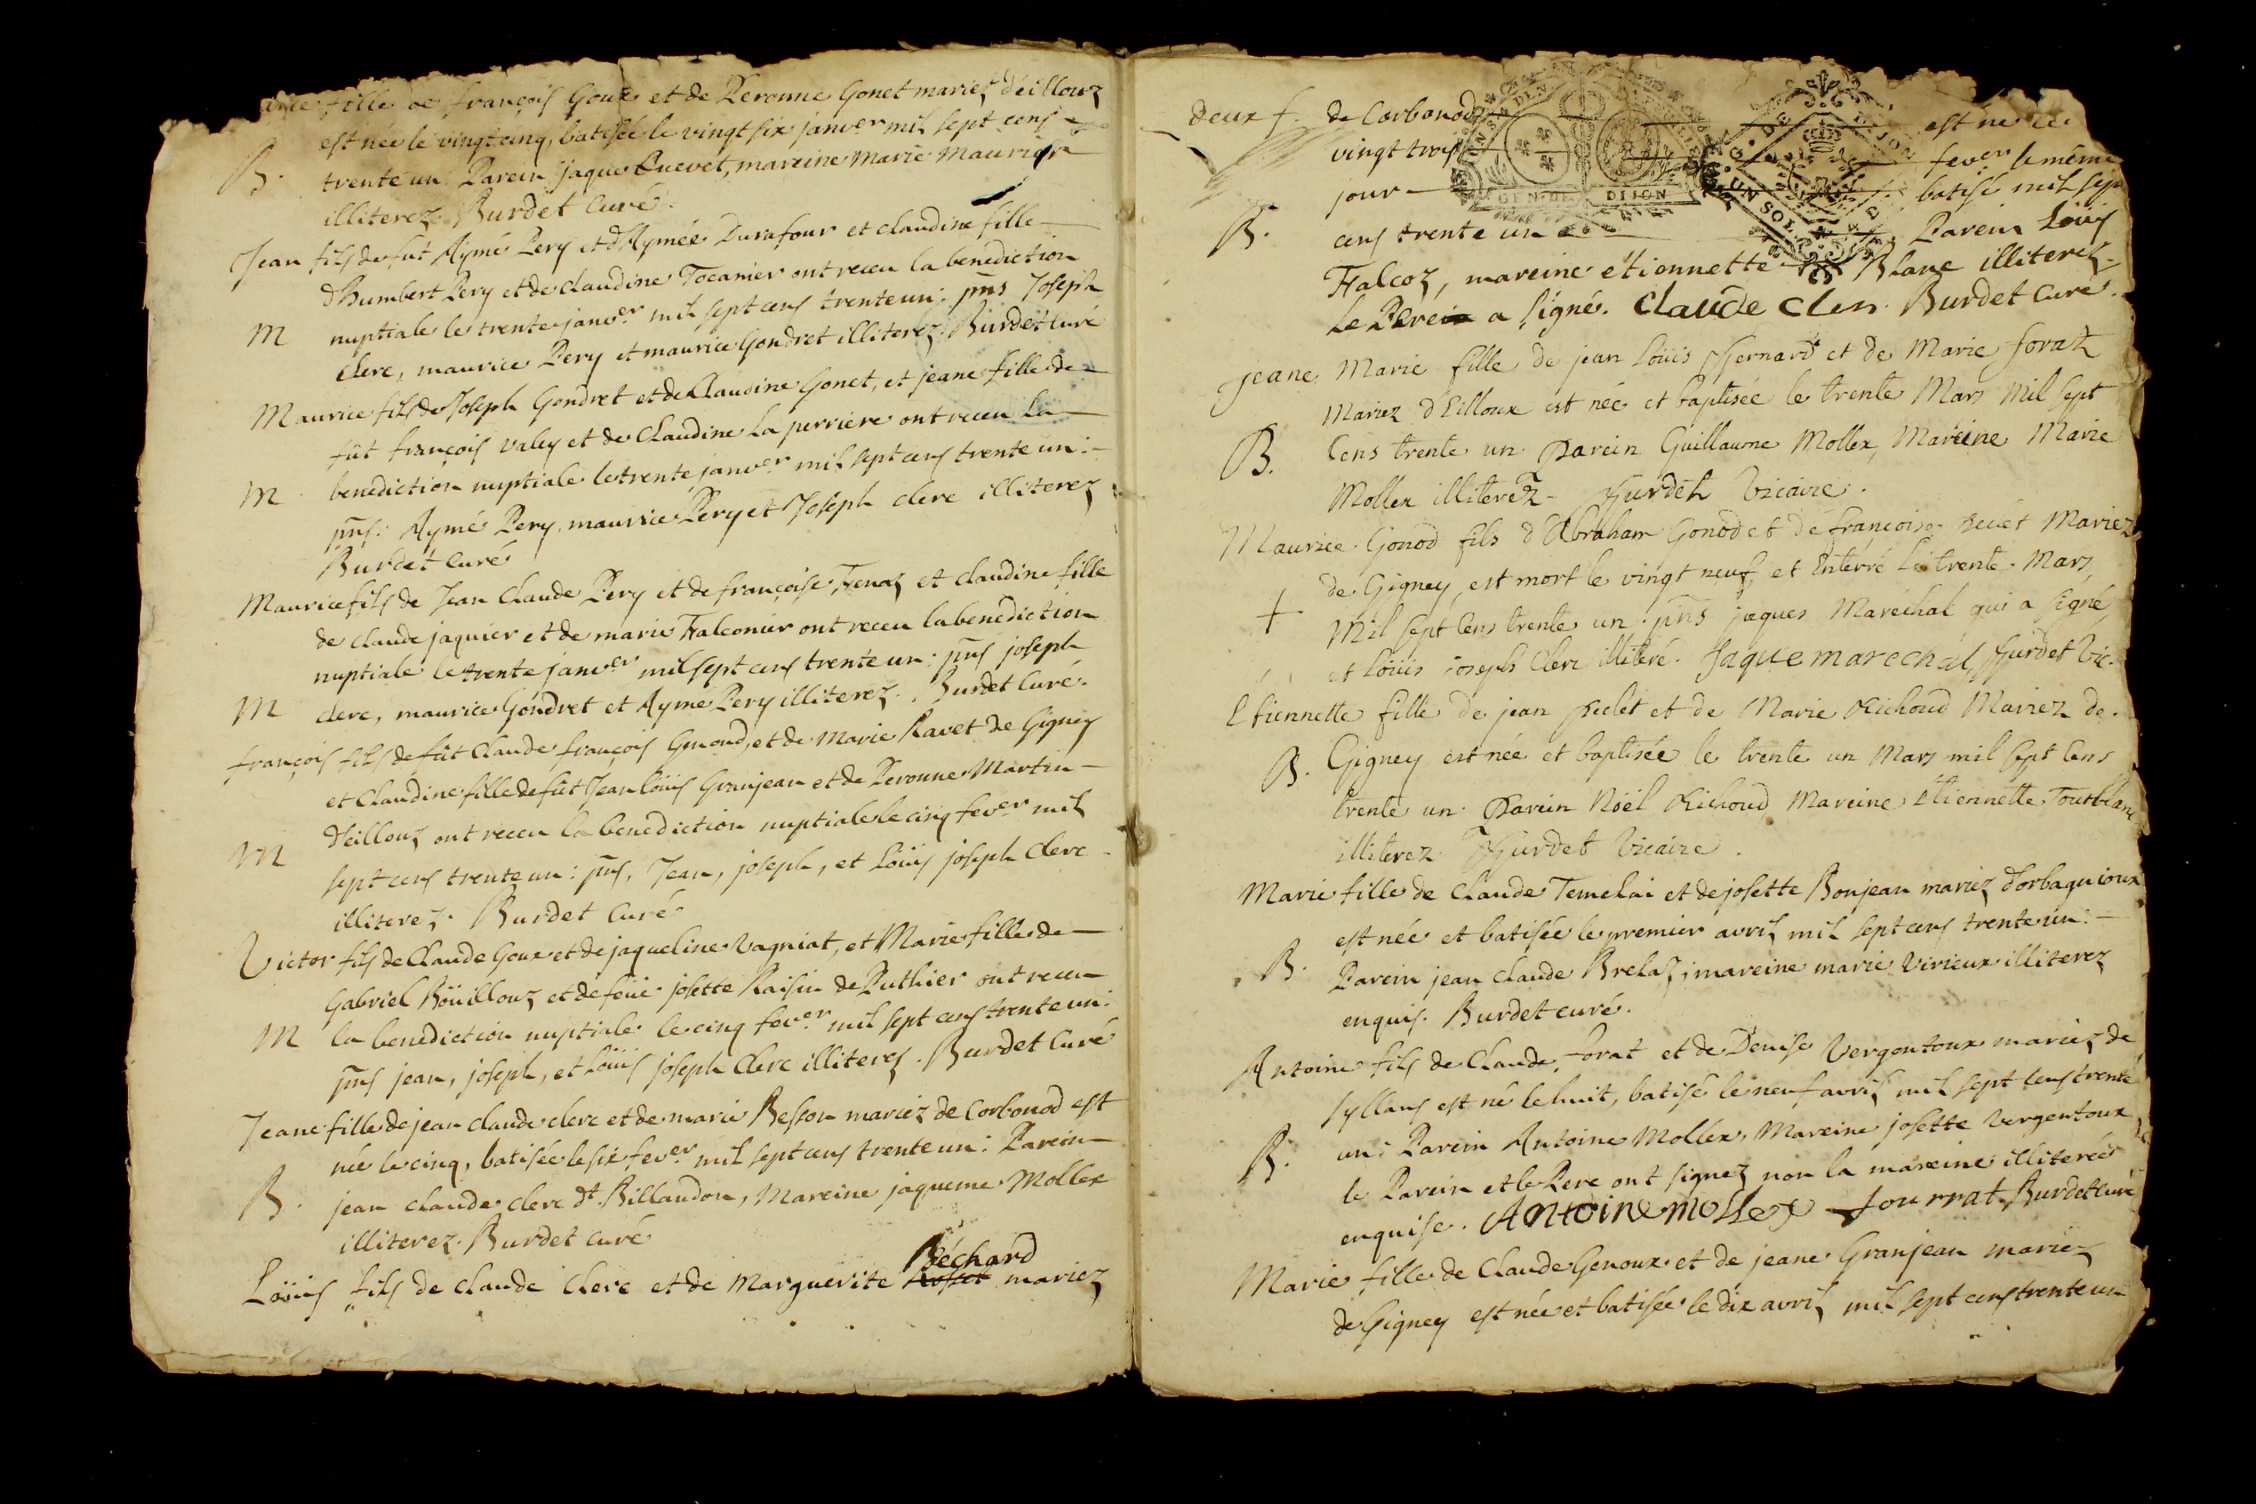 fille de françois Goux et de Peronne Gonet mariez d'éillouz
est née le vingt cinq, batisée le vingt six janver mil sept cens
B. trente un: Parein jaque Quevet, mareine Marie Maurier
illiterez. Burdet Curé.
Jean fils de fût Aymé Pery et d'Aymée Durafour et claudine fille
d'humbert Pery et de claudine Tocanier ont receu la benediction
M nuptiale le trente janver mil sept cens trente un: pns Joseph
clerc, maurice Pery et maurice Gondret illiterez. Burdet curé
Maurice fils de Joseph Gondret et de Claudine Gonet, et jeane fille de
fût françois valey et de Claudine La perriere ont receu la
M benediction nuptiale le trente janver mil sept cens trente un:
pns: Aymé Pery, maurice Pery et Joseph clerc illiterez
Burdet Curé
Maurice fils de Jean Claude Pery et de françoise Tenaz et claudine fille
de claude jaquier et de marie Falconier ont receu la benediction
nuptiale le trente janver mil sept cens trente un: pns joseph
M clerc, maurice Gondret et Aymé Pery illiterez. Burdet Curé.
françois fils de fût Claude françois Gmond, et de Marie Ravet de Gigney
et Claudine fille de fût Jean loüis Granjean et de Peronne Martin
M d'eillouz ont receu la benediction nuptiale le cinq fever mil
sept cens trente un: pns, Jean, joseph, et Loüis joseph clerc
illiterez. Burdet Curé
Victor fils de Claude Goux et de jaqueline Vagniat, et Marie fille de
Gabriel Boüillouz et de feüe josette Raisin de Puthier ont receu
M la benediction nuptiale le cinq fever mil sept cens trente un:
pns jean, joseph, et Loüis joseph Clerc illiterez. Burdet Curé
Jeane fille de jean claude clerc et de marie Besson mariez de Corbonod est
née le cinq, batisée le six fever mil sept cens trente un: Parein
B. jean claude clerc dt Billaudon, Mareine jaqueme Mollex
illiterez. Burdet curé
Béchard
Loüis fils de claude clerc et de Marguerite mariez
deux f. de Corbonod est né le
vingt trois fever le même
jour batisé mil sept
B. cens trente un Parein Loüis
Falcoz, mareine etiennette Blanc illiterez
Le Pere a signé. Claude Cler. Burdet curé.
Jeane Marie fille de jean Loüis Bernard et de Marie forat
Mariez d'Eilloux est née et baptisée le trente Mars Mil sept
B. Cens trente un Parein Guillaume Mollex, Mareine Marie
Mollex illiterez - Burdet Vicaire.
Maurice Gonod fils d'Abraham Gonod et de françoise Mariez
de Gigney, est mort le vingt neuf, et Enterré le trente Mars
+ Mil sept Cens trente un. pns jaques Maréchal qui a signé,
et Loüis joseph Clerc illiteré. Jaque marechal, Burdet Vic.
Etiennette fille de jean et de Marie Richoud Mariez de
B. Gigney est née et baptisée le trente un Mars mil sept Cens
trente un. Parein Noël Richoud Mareine Etiennette Toutblanc
illiterez Burdet Vicaire.
Marie fille de Claude Temelai et de josette Bonjean mariez d'orbagnioux
est née et batisée le premier avril mil sept cens trente un:
B. Parein jean claude Brelaz, mareine marie Virieux illiterez
enquis. Burdet curé.
Antoine fils de Claude forat et de Denise Vergontoux mariez de
syllans est né le huit, batisé le neuf avril mil sept cens trente
B. un: Parein Antoine Mollex, Mareine josette vergentoux
le Parein et le Pere ont signez non la mareine illiterée
enquise. Antoine mollex fourrat Burdet curé
Marie fille de Claude Genoux et de jeane Granjean mariez
de Gigney est née et batisée le dix avril mil sept cens trente un
GEN. DE DIJON
UN SOL